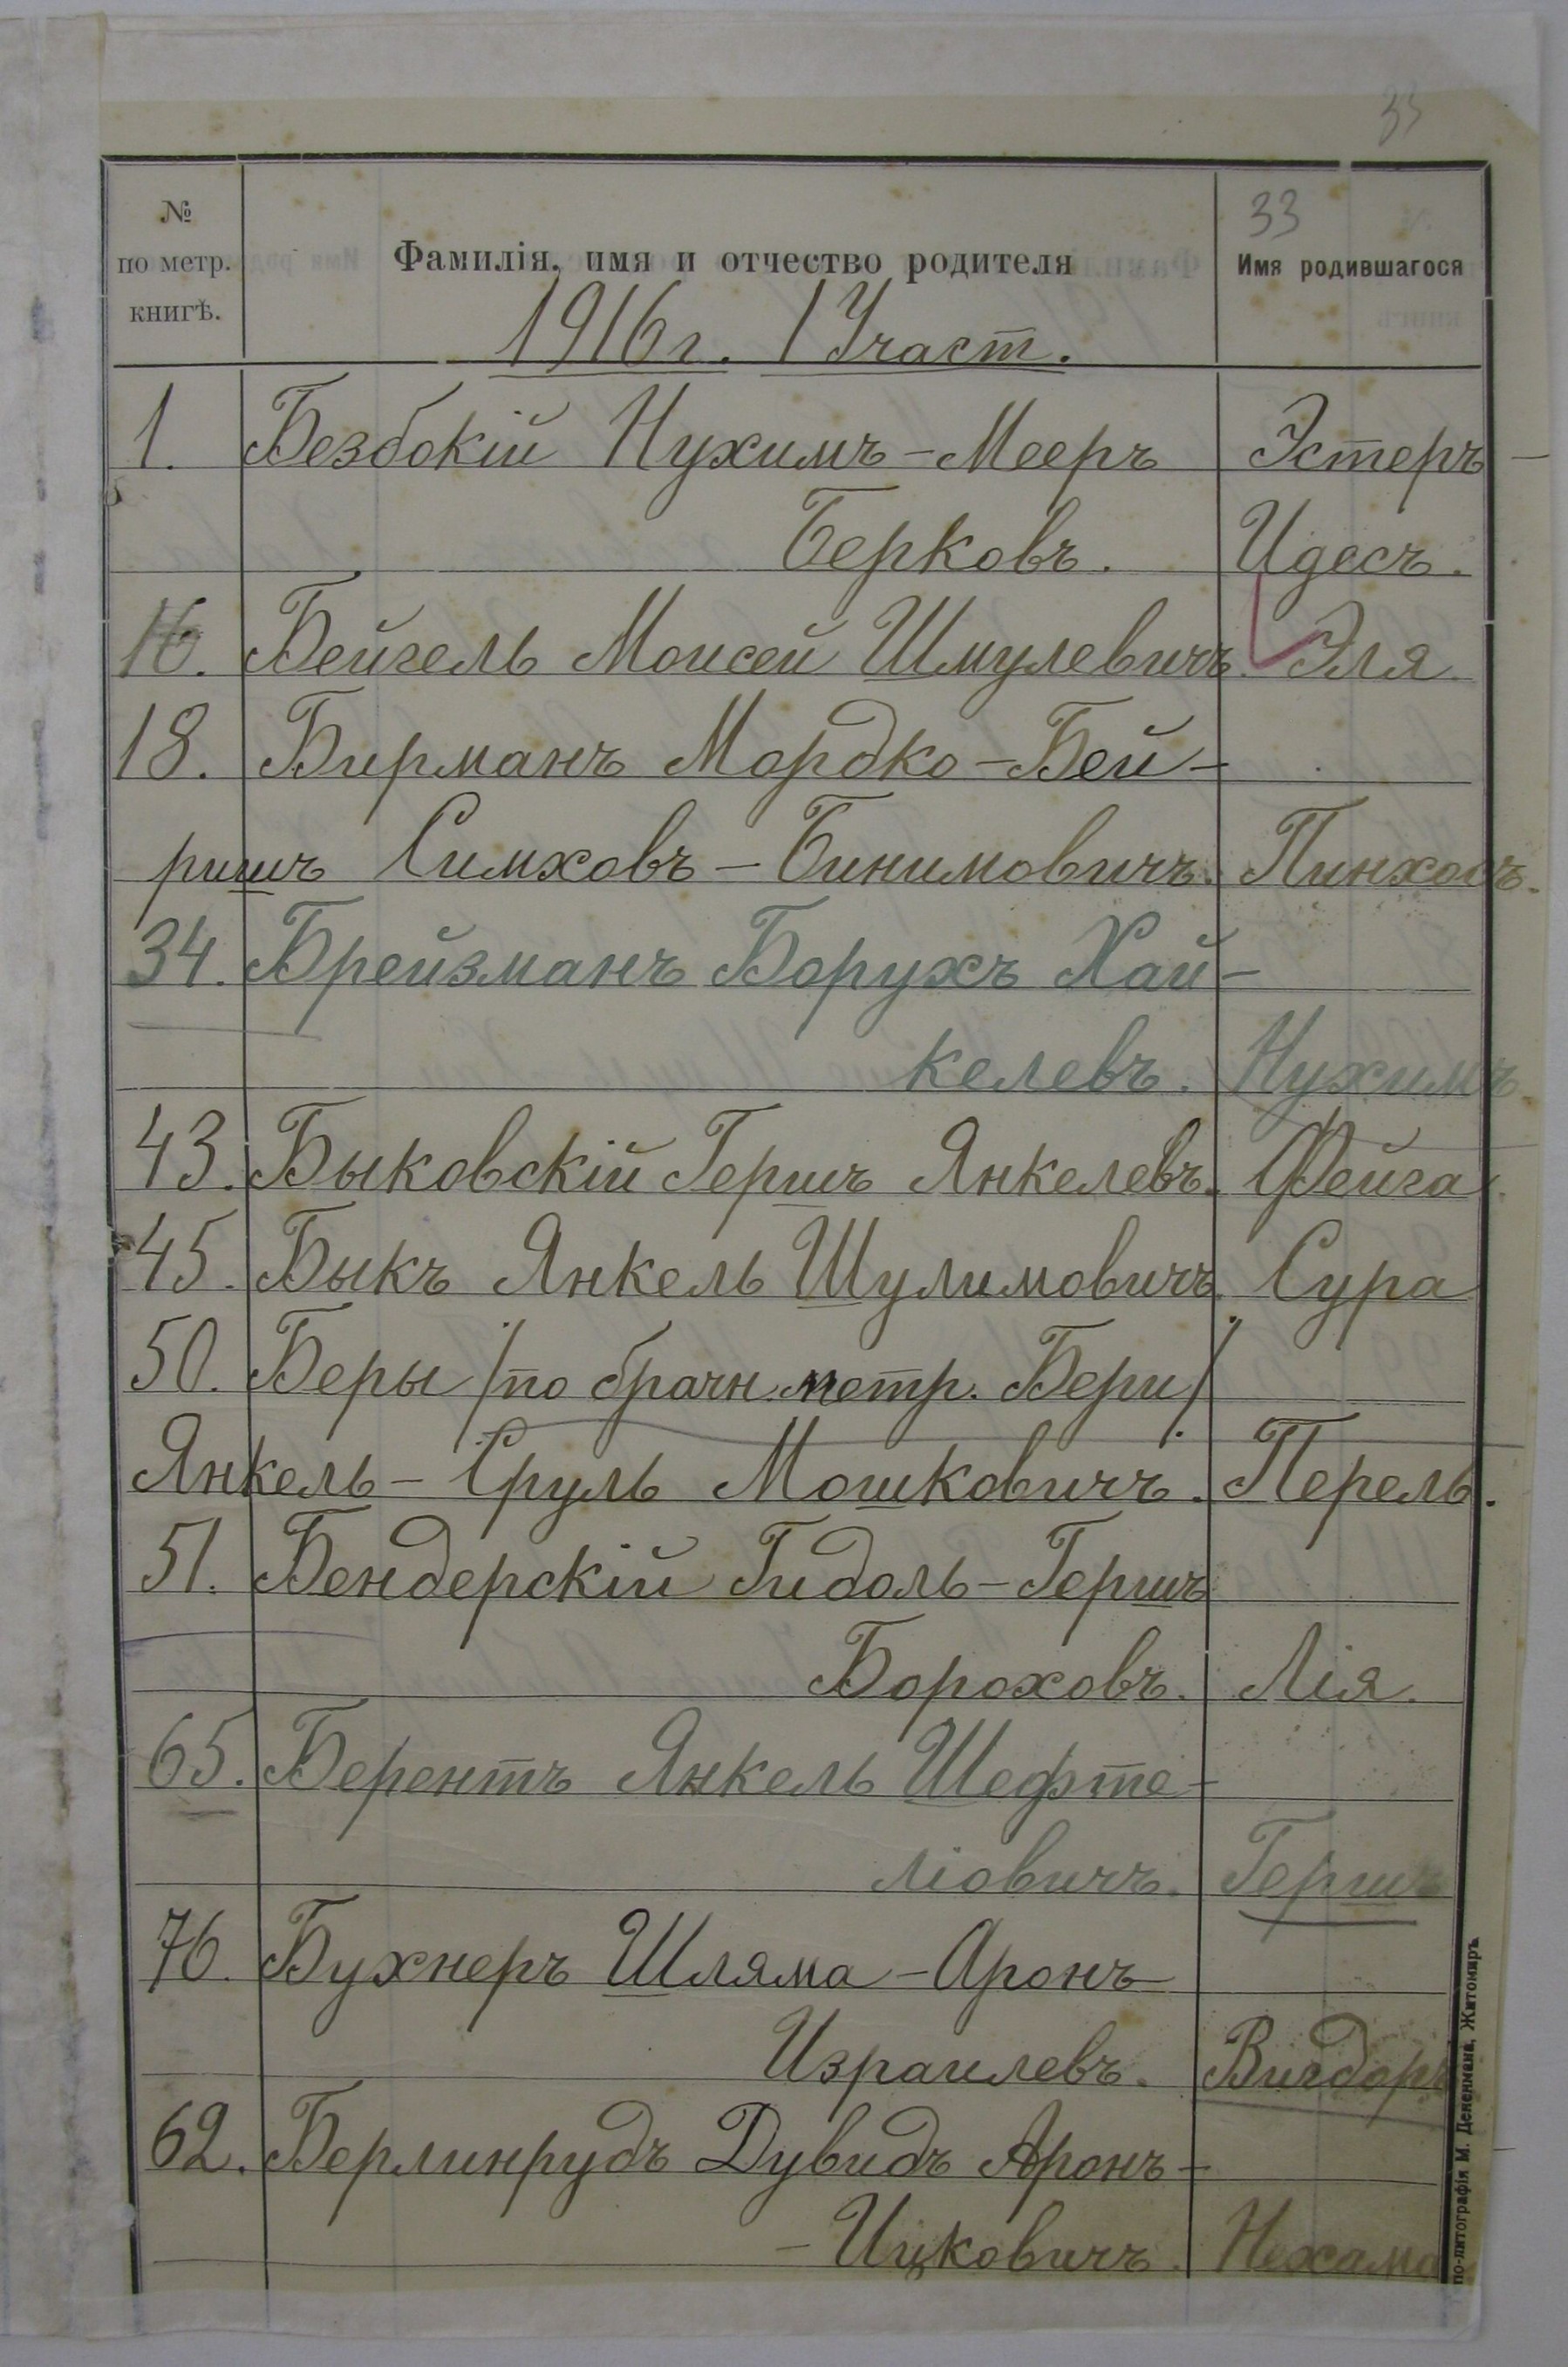 33
№
по метр.
книгѣ.
Фамилія, имя и отчество родителя
33
Имя родившагося
1916 г. 1 Участ.
1. Безбокій Нухимъ-Мееръ Эстеръ
Берковъ. Идесъ.
16. Бейгель Моисей Шмулевичъ. Эля.
18. Бирманъ Мордко-Бей-
ришъ Симховъ-Бинимовичъ. Пинхосъ.
34. Брейзманъ Борухъ Хай-
келевъ. Нухимъ.
43. Быковскій Гершъ Янкелевъ. Фейга.
45. Быкъ Янкель Шулимовичъ. Сура
50. Беры /по брачн. метр. Бери/
Янкель-Сруль Мошковичъ. Перель.
51. Бендерскій Гидоль-Гершъ
Бороховъ. Лія.
65. Берентъ Янкель Шефте-
ліовичъ. Гершъ
76. Бухнеръ Шляма-Аронъ-
Израилевъ. Вигдоръ
62. Берлинрудъ Дувидъ Аронъ-
-Ицковичъ. Нехама
по-литографія М. Дененмана, Житомиръ